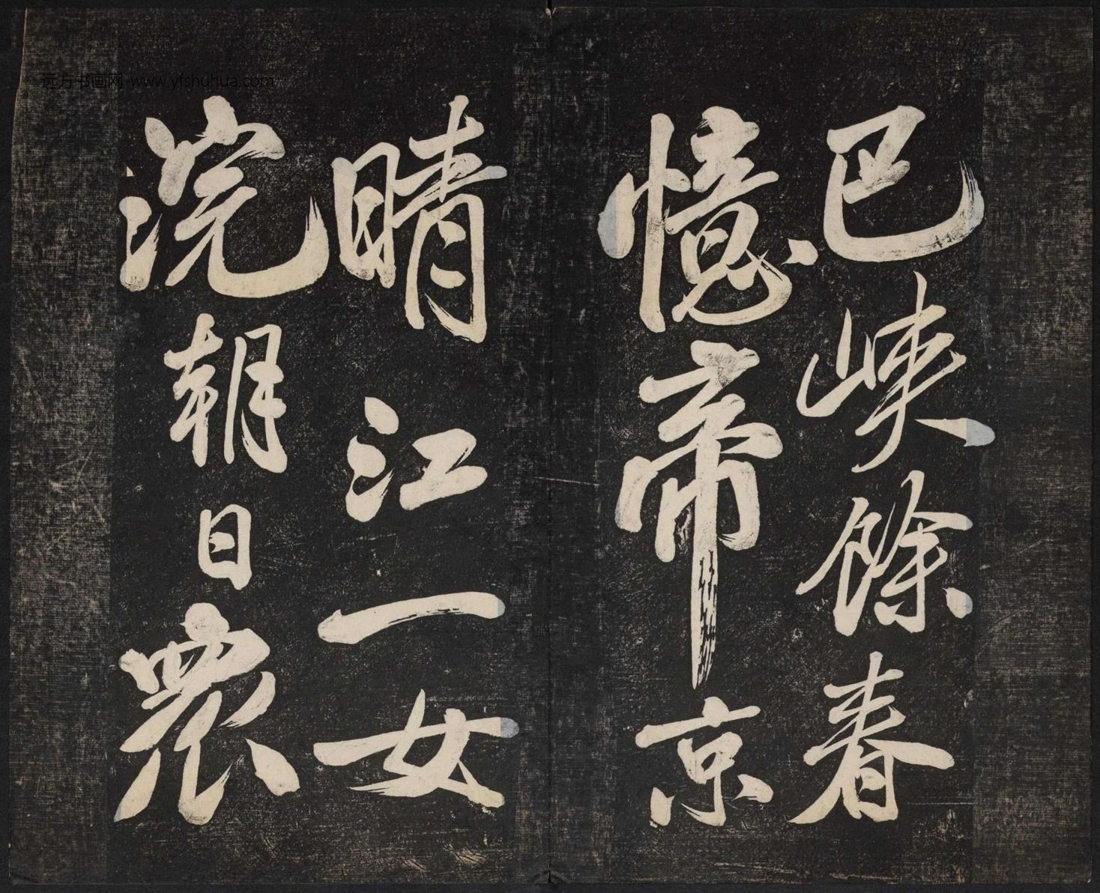 远方书画网 www.yfshuhua.com
巴峽餘春
憶帝京
晴江一女
浣朝日衆